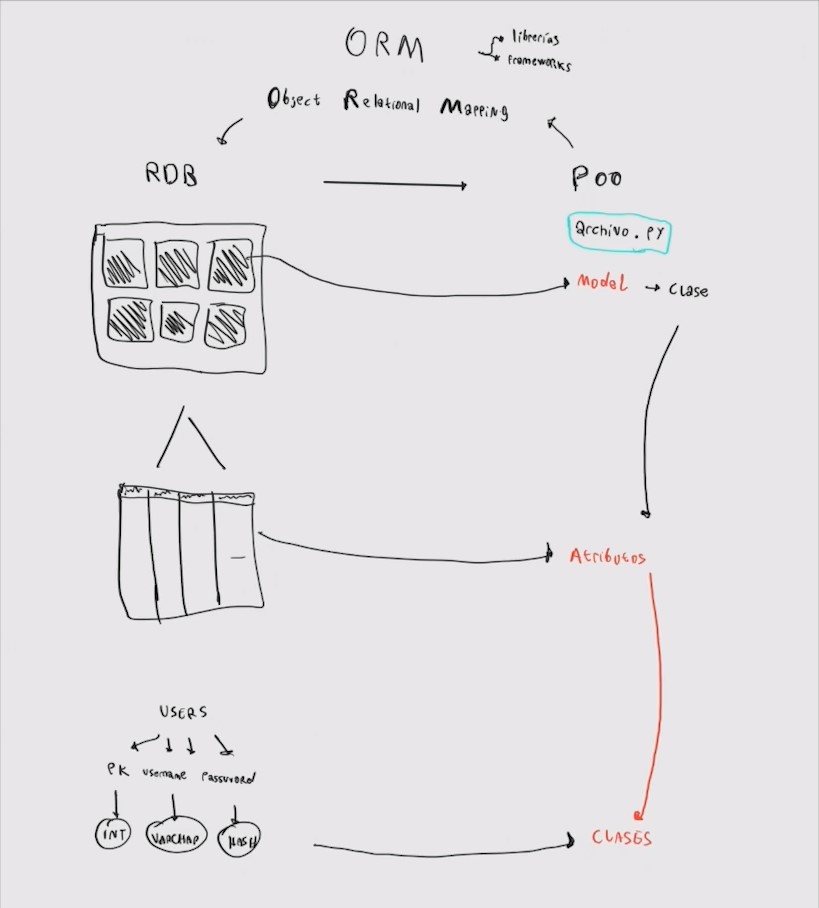 ORM
librerías
frameworks
Object Relational Mapping
RDB
POO
archivo.py
Model → Clase
Atributos
USERS
PK username password
INT VARCHAR HASH
CLASES